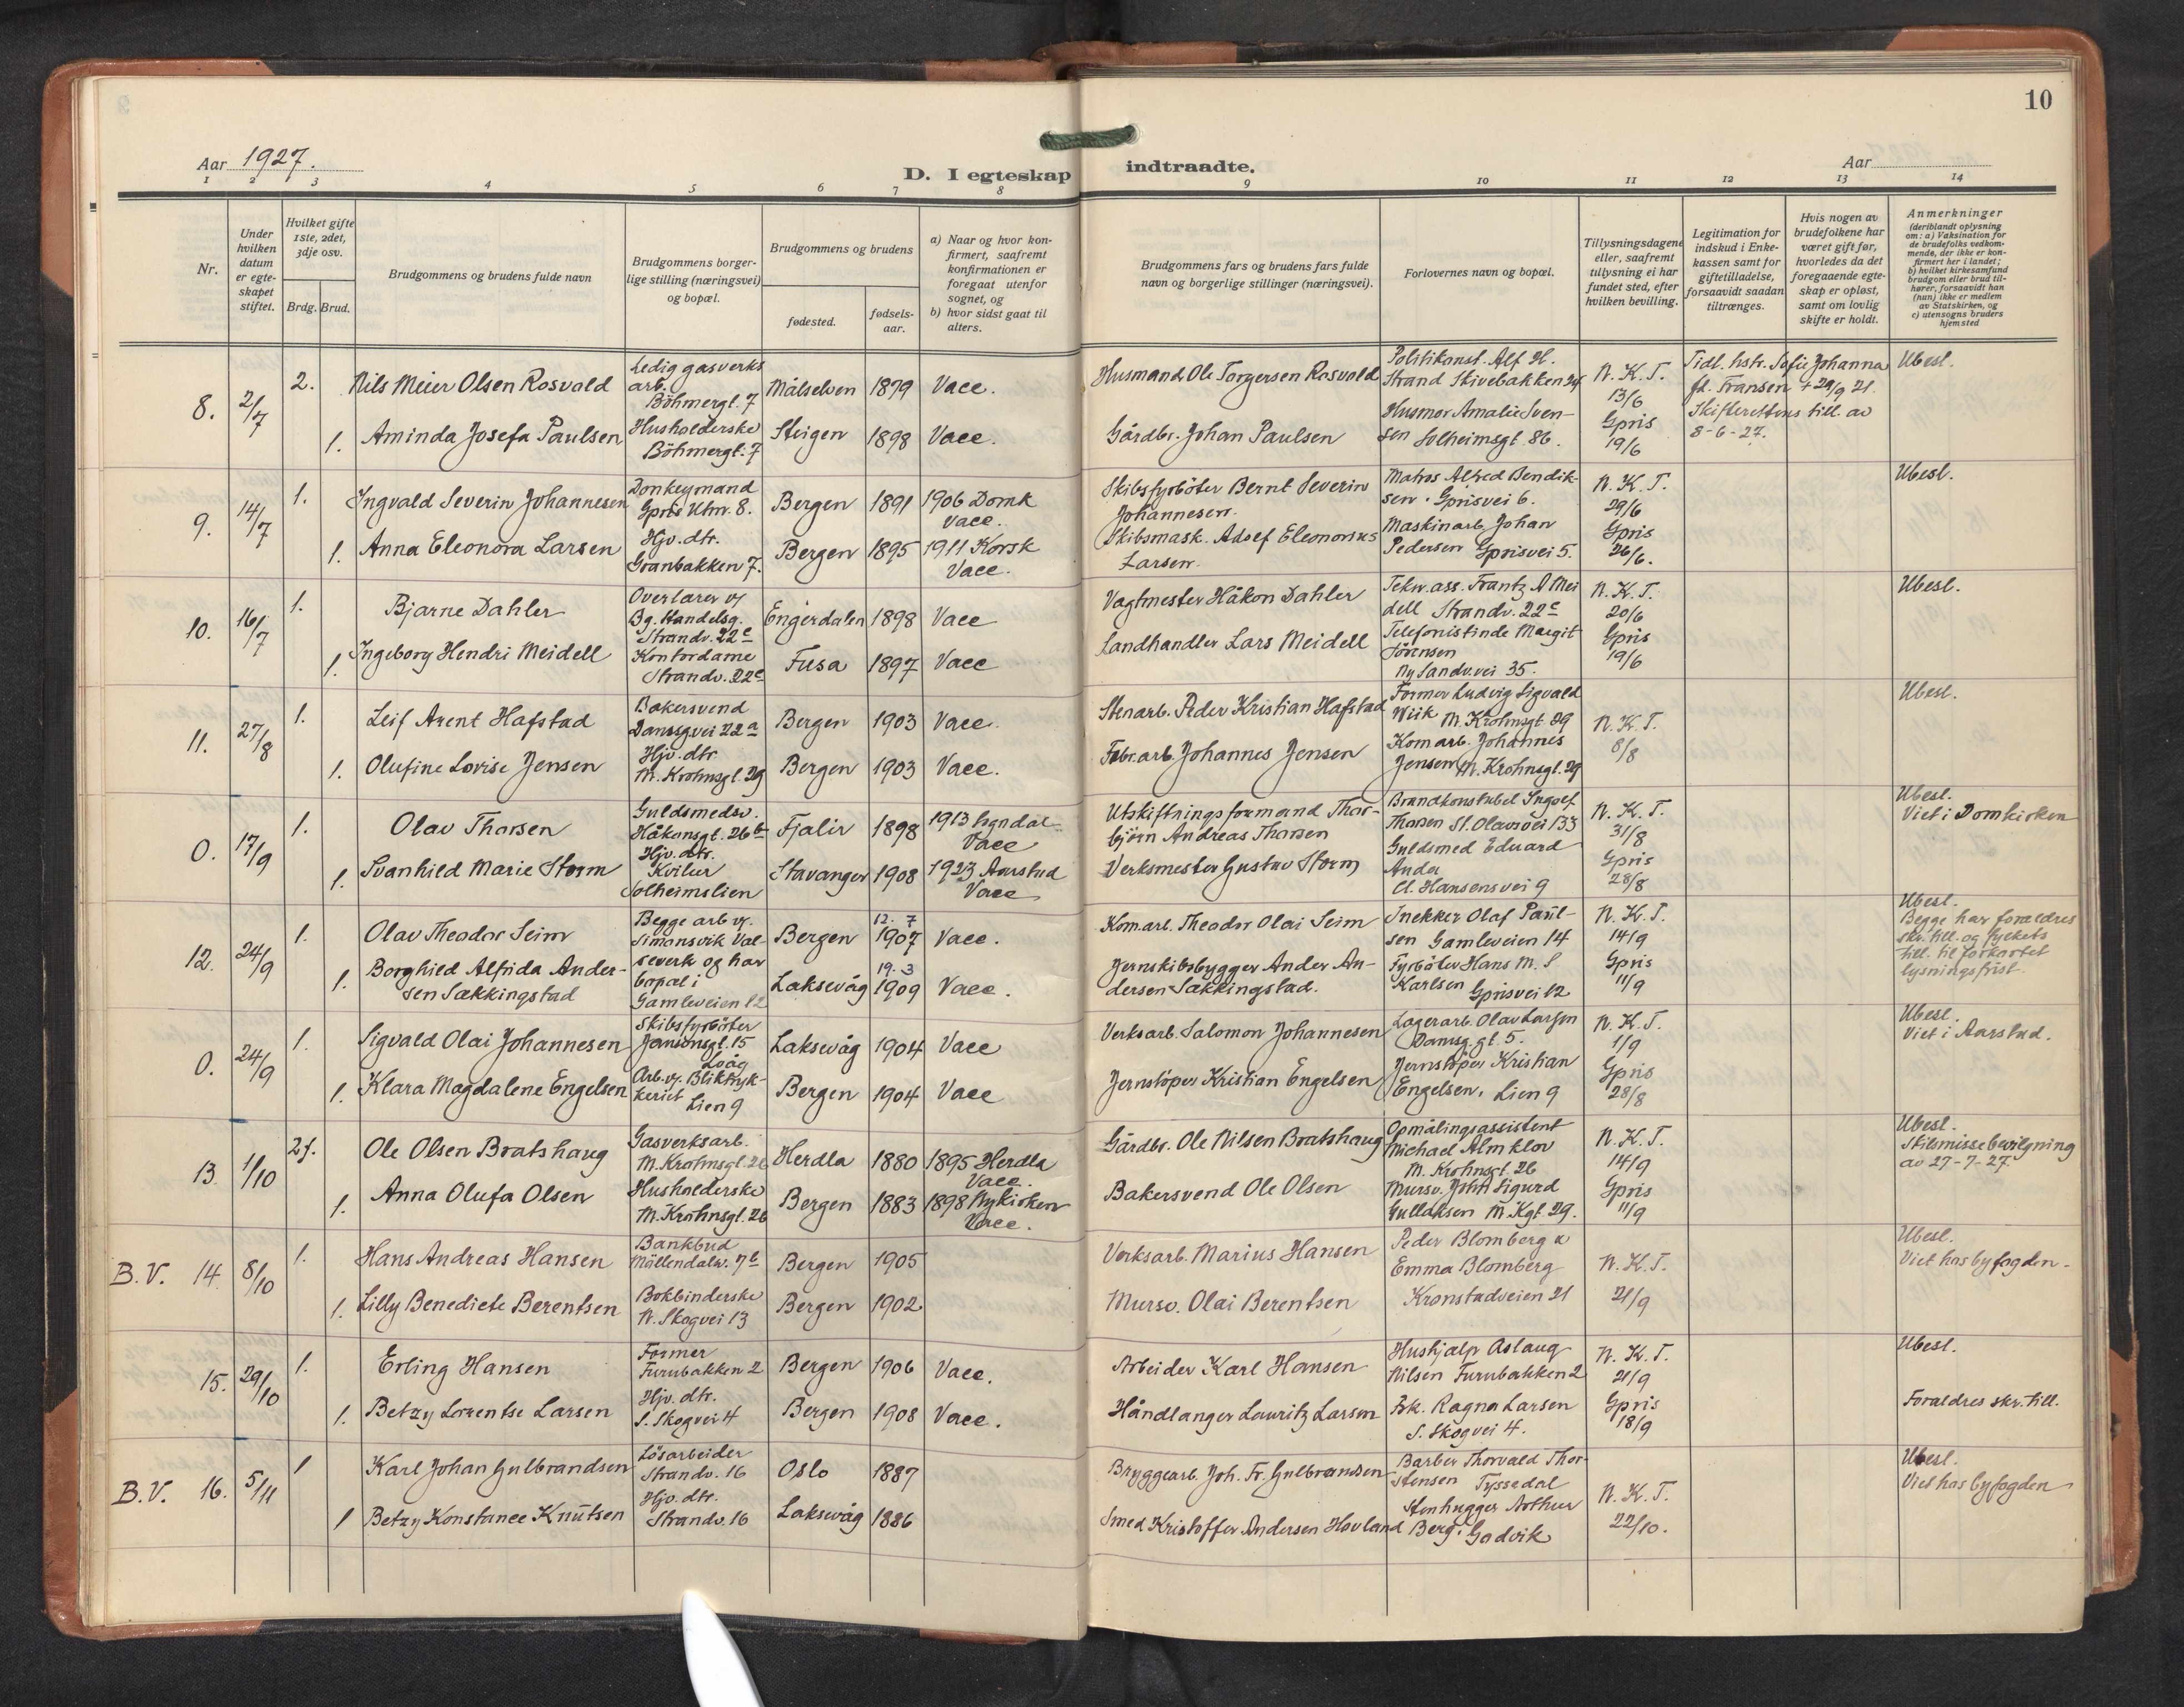 10
Aar 1927.
D. I egteskap indtraadte.
Aar
1 2 3 4 5 6 7 8 9 10 11 12 13 14
Nr.
Under hvilken datum er egteskapet stiftet.
Hvilket gifte 1ste, 2det, 3dje osv.
Brdg. Brud.
Brudgommens og brudens fulde navn
Brudgommens borgerlige stilling (næringsvei) og bopæl.
Brudgommens og brudens
fødested.
fødselsaar.
a) Naar og hvor konfirmert, saafremt konfirmationen er foregaat utenfor sognet, og
b) hvor sidst gaat til alters.
Brudgommens fars og brudens fars fulde navn og borgerlige stillinger (næringsvei).
Forlovernes navn og bopæl.
Tillysningsdagene eller, saafremt tillysning ei har fundet sted, efter hvilken bevilling.
Legitimation for indskud i Enkekassen samt for giftetilladelse, forsaavidt saadan tiltrænges.
Hvis nogen av brudefolkene har været gift før, hvorledes da det foregaaende egteskap er opløst, samt om lovlig skifte er holdt.
Anmerkninger (deriblandt oplysning om: a) Vaksination for de brudefolks vedkommende, der ikke er konfirmert her i landet; b) hvilket kirkesamfund brudgom eller brud tilhører, forsaavidt han (hun) ikke er medlem av Statskirken, og c) utensogns bruders hjemsted
8. 2/7 2. Nils Meier Olsen Rosvold Ledig gasverksarb. Böhmergt. 7 Målselven 1879 Vacc. Husmand Ole Torgersen Rosvold Politikonst. Alf H. Strand Stivebakken 24 N. K. T. 13/6 Tidl. hstr. Sofie Johanna fd. Fransen + 29/9 21. Ubesl.
1. Aminda Josefa Paulsen Husholderske Böhmergt. 7 Steigen 1898 Vacc. Gårdbr. Johan Paulsen Husmor Amalie Svensen Solheimsgt. 86. Gpris 19/6 Skifterettens till. av 8-6-27.
9. 14/7 1. Ingvald Severin Johannesen Donkeymand Gpris Ktm. 8. Bergen 1891 1906 Domk Vacc. Skibsfyrböter Bernt Severin Johannesen. Matros Alfred Bendiksen. Gprisvei 6. N. K. T. 29/6 Ubesl.
1. Anna Eleonora Larsen Hjv. dtr. Granbakken 7. Bergen 1895 1911 Korsk Vacc. Skibsmask. Adolf Eleonorius Larsen. Maskinarb. Johan Pedersen Gprisvei 5. Gpris 26/6.
10. 16/7 1. Bjarne Dahler Overlærer v/ Bg. Handelsg. Strandv. 22c Engerdalen 1898 Vacc Vagtmester Håkon Dahler Tekn. ass. Frantz A Meidell Strandv. 22c N. K. T. 20/6 Ubesl.
1. Ingeborg Hendri Meidell Kontordame Strandv. 22c Fusa 1897 Vacc Landhandler Lars Meidell Telefonistinde Margit Sörensen Ny Sandv.vei 35. Gpris 19/6
11. 27/8 1. Leif Arent Hafstad Bakersvend Damsgvei 22a Bergen 1903 Vacc. Stenarb. Peder Kristian Hafstad Former Ludvig Sigvald Wiik M. Krohnsgt 29 N. K. T. 8/8 Ubesl.
1. Olufine Lovise Jensen Hjv. dtr. M. Krohnsgt. 29 Bergen 1903 Vacc. Fabr.arb. Johannes Jensen Kom arb. Johannes Jensen M. Krohnsgt. 29
0. 17/9 1. Olav Thorsen Guldsmedsv. Håkonsgt. 26b Fjalir 1898 1913 Vacc Utskiftningsformand Thorbjörn Andreas Thorsen Brandkonstabel Ingolf Thorsen St. Olavsvei 133 N. K. T. 31/8 Ubesl. Viet i Domkirken
1. Svanhild Marie Storm Hjv. dtr. Kvilur Solheimslien Stavanger 1908 1923 Aarstad Vacc Verksmester Gustav Storm Guldsmed Edvard Anda Cl. Hansensvei 9 Gpris 28/8
12. 24/9 1. Olav Theodor Seim Begge arb v/. Simonsvik Valseverk og har bopæl i Gamleveien 12 Bergen 12. 7 1907 Vacc. Kom.arb. Theodor Olai Seim Snekker Olaf Paulsen Gamleveien 14 N. K. T. 14/9 Ubesl. Begge har forældres skr. till. og fylkets till. til forkortet lysningsfrist.
1. Borghild Alfida Andersen Sækkingstad Laksevåg 19. 3 1909 Vacc. Jernskibsbygger Ander Andersen Sækkingstad. Fyrböter Hans M. S Karlsen Gprisvei 12 Gpris 11/9
0. 24/9 1. Sigvald Olai Johannesen Skibsfyrböter Jansonsgt. 15 Lvåg Laksevåg 1904 Vacc Verksarb. Salomon Johannesen Lagerarb. Olav Larsen Damsg. gt. 5. N. K. T. 1/9 Ubesl. Viet i Aarstad.
1. Klara Magdalene Engelsen Arb. v/. Bliktrykkeriet Lien 9 Bergen 1904 Vacc Jernstöper Kristian Engelsen Jernstöper Kristian Engelsen, Lien 9 Gpris 28/8
13 1/10 2f. Ole Olsen Bratshaug Gasverksarb. M. Krohnsgt. 26 Herdla 1880 1895 Herdla Vacc. Gårdbr. Ole Nilsen Bratshaug Opmålingsassistent Michael Almklov M. Krohnsgt. 26 N. K. T. 14/9 Ubesl. Skilsmissebevilgning av 27-7-27.
1. Anna Olufa Olsen Husholderske M. Krohnsgt. 26 Bergen 1883 1898 Nykirken Vacc. Bakersvend Ole Olsen Mursv. John Sigurd Gullaksen M. Kgt. 29. Gpris 11/9
B. V. 14. 8/10 1. Hans Andreas Hansen Bankbud Möllendalsv. 7b Bergen 1905 Verksarb. Marius Hansen Peder Blomberg & Emma Blomberg N. K. T. 21/9 Ubesl. Viet hos byfogden.
1. Lilly Benedicte Berentsen Bokbinderske N. Skogvei 13 Bergen 1902 Mursv. Olai Berentsen Kronstadveien 21
15. 29/10 1. Erling Hansen Former Furubakken 2 Bergen 1906 Vacc. Arbeider Karl Hansen Hushjælp Aslaug Nilsen Furubakken 2 N. K. T. 21/9 Ubesl.
1. Betzy Lorentse Larsen Hjv. dtr. S. Skogvei 4 Bergen 1908 Vacc. Håndlanger Lauritz Larsen Frk. Ragna Larsen S. Skogvei 4. Gpris 18/9 Forældres skr. till.
B. V. 16. 5/11 1 Karl Johan Gulbrandsen Lösarbeider Strandv. 16 Oslo 1887 Bryggearb. Joh. Fr. Gulbrandsen Barber Thorvald Thorstensen Tyssedal N. K. T. 22/10. Ubesl. Viet hos byfogden
1 Betzy Konstance Knutsen Hjv. dtr. Strandv. 16 Laksevåg 1886 Smed Kristoffer Andersen Hovland Stenhugger Arthur Berg. Godvik